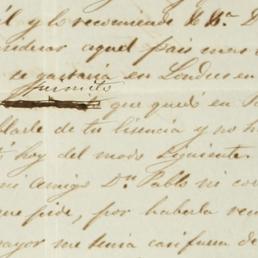 y lo recomiendo le Dn. D
aquel pais mas
se gastaria en Londres en
permito
que quedó en Pa
blarle de tu licencia y no h
hoy del modo siguiente.
mi amigo Dn. Pablo mi cor
que pide, por haberla rem
mayor me tenia casi fuera de